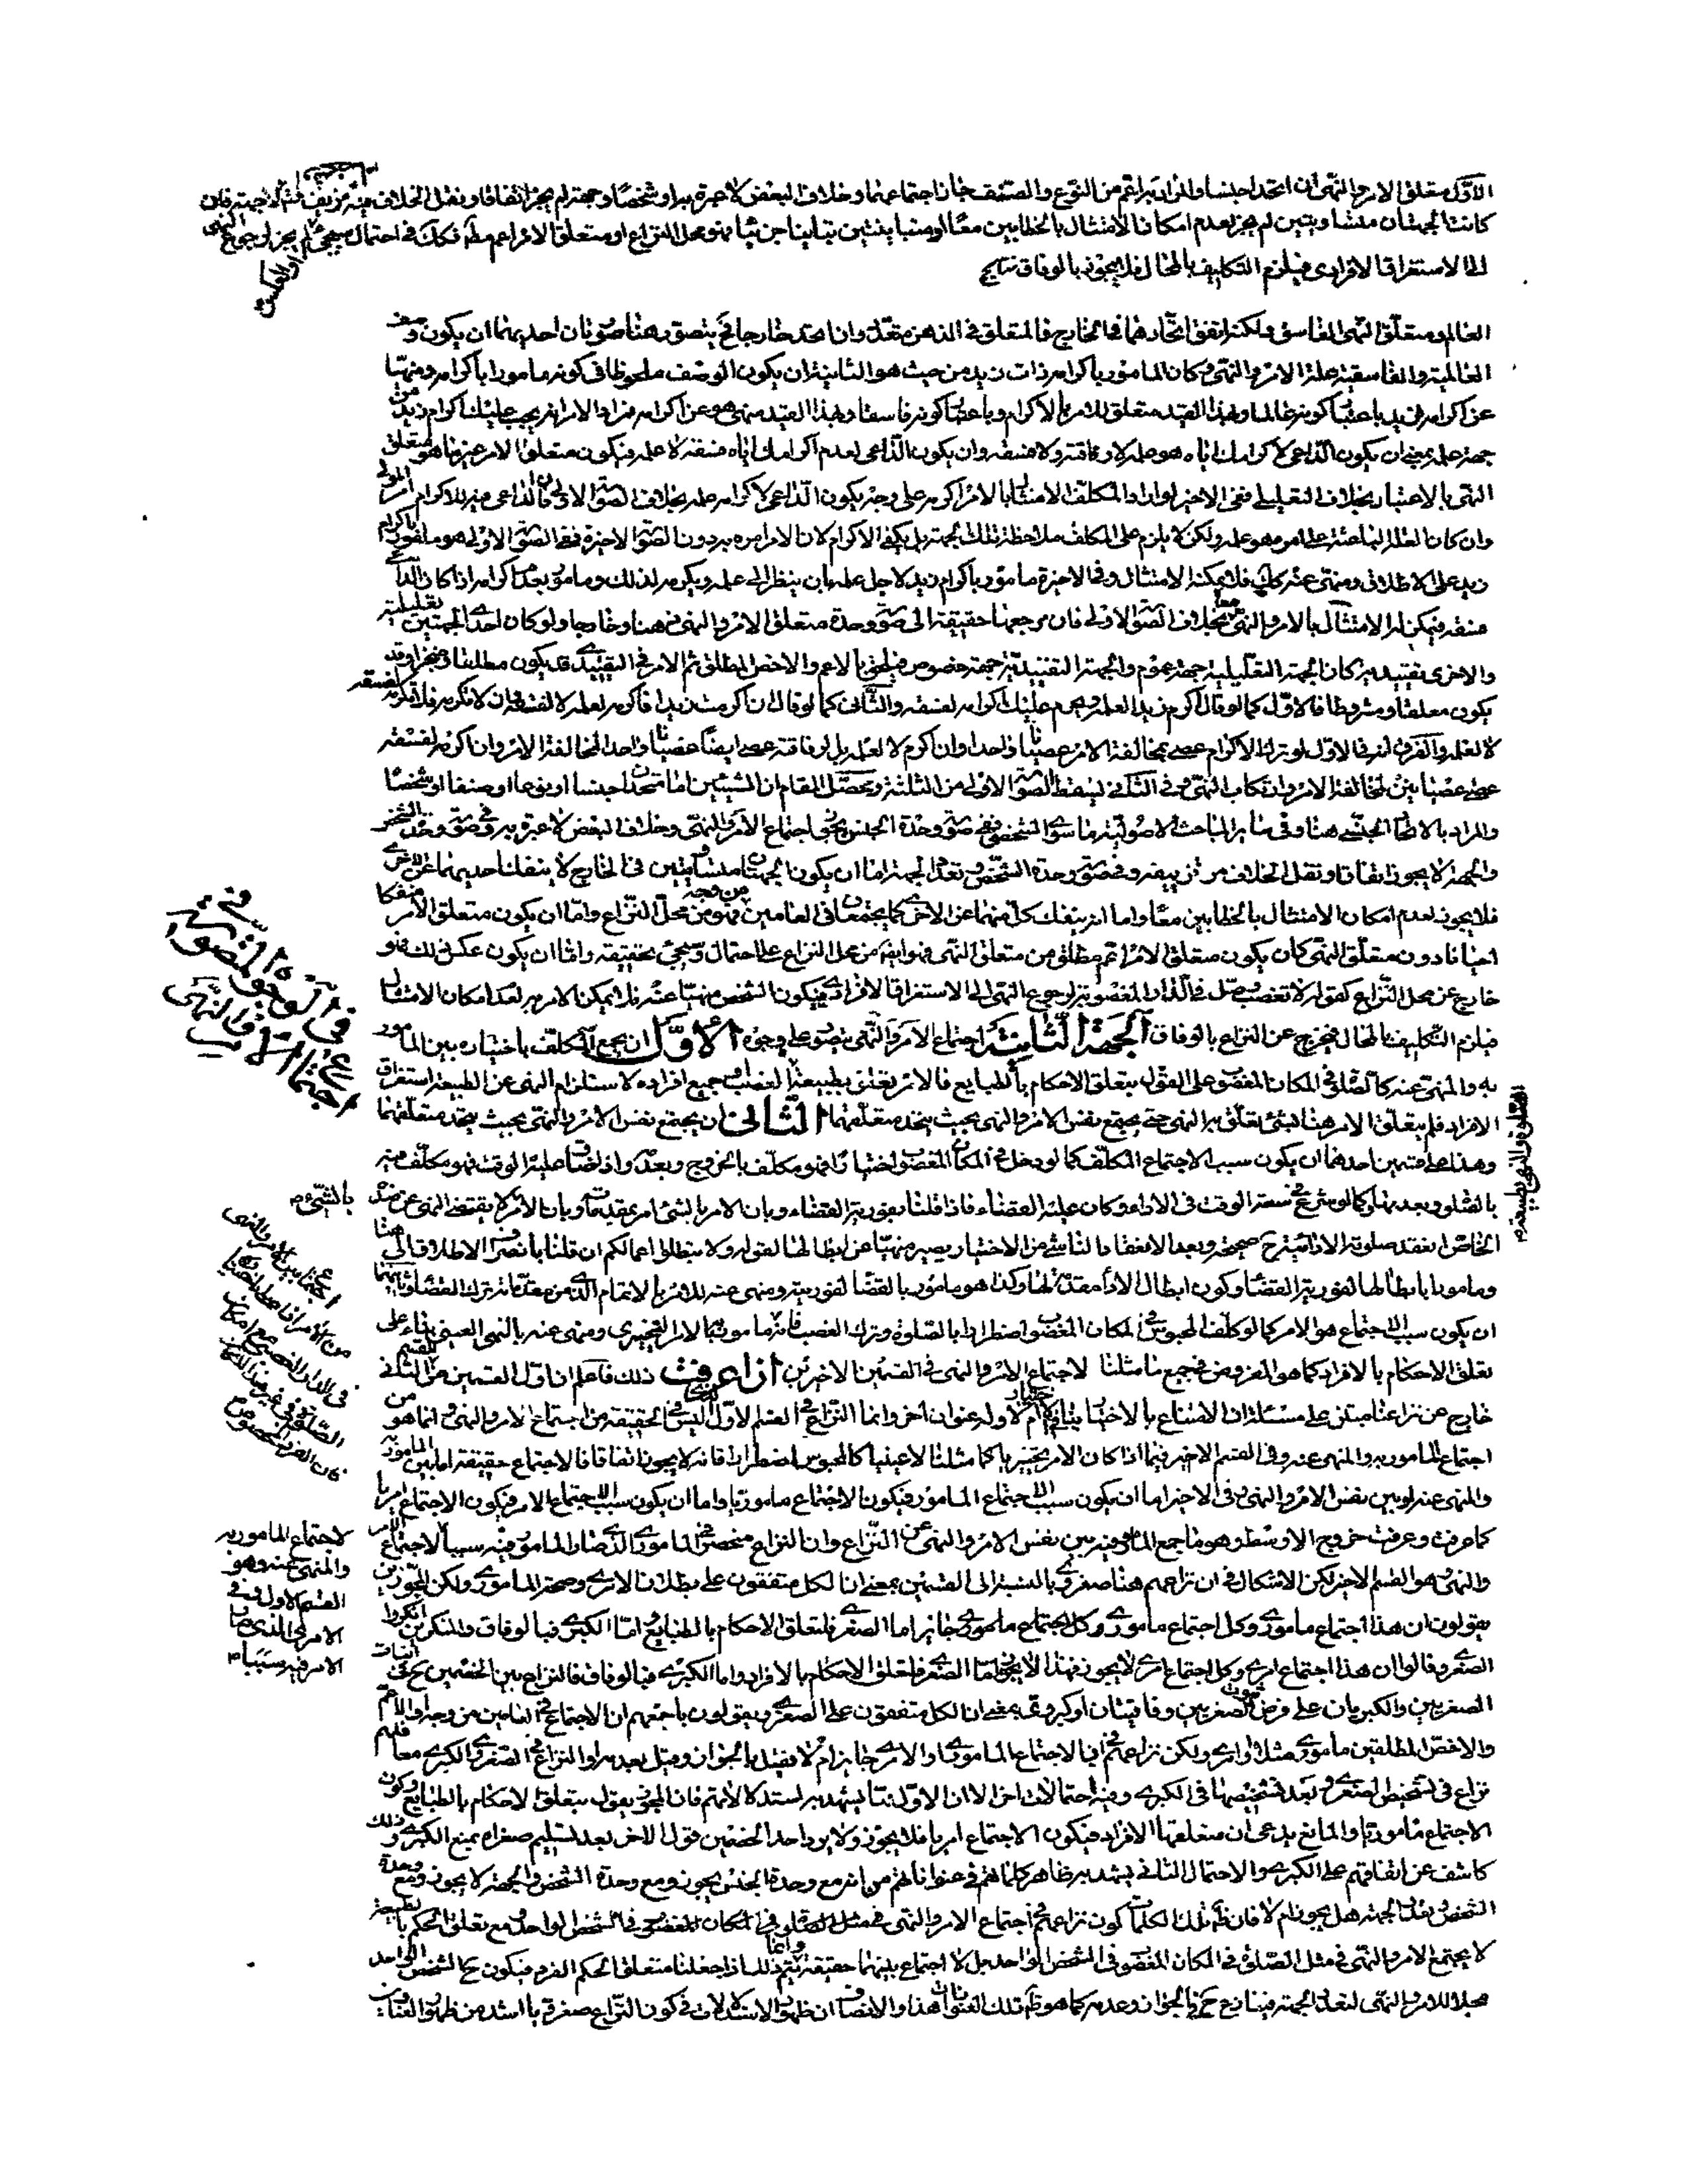 الاول متعلق الامر والنهى ان اتحد اجنسا والمراد به اعم من النوع والصنف جاز اجتماعهما وخلاف البعض لا عبرة به او شخصا وجهة لم يجز اتفاقا ونقل الخلاف فيه مزيف
كانت الجهتان متساويتين لم يجز لعدم امكان الامتثال بالخطابين معا او متباينتين تباينا جزئيا فهو محل النزاع او متعلق الامر اعم مط فكك فى احتمال يجيئ لم يجز لرجوع النهى
الى الاستغراق الافرادى فيلزم التكليف بالمحال فلا يجوز بالوفاق
العالم ومتعلق النهى الفاسق ولكن اتفق اتحادهما فى الخارج فالمتعلق فى الذهن متعدد وان اتحد خارجا فح يتصور هنا صورتان احديهما ان يكون وصف
العالمية والفاسقية علة الامر والنهى وكان المامور باكرامه ذات زيد من حيث هو الثانية ان يكون الوصف ملحوظا فى كونه مامورا باكرامه ومنهيا
عن اكرامه فزيد باعتبار كونه عالما وبهذا القيد متعلق للامر بالاكرام وباعتبار كونه فاسقا وبهذا القيد منهى هو عن اكرامه فمراد الامر انه يجب عليك اكرام زيد من
جهة علمه بمعنى ان يكون الداعى لاكرامك اياه هو علمه لا رفاقته ولا فسقه وان يكون الداعى لعدم اكرامك اياه فسقه لا علمه فيكون متعلق الامر غير ما هو متعلق
النهى بالاعتبار بخلاف التعليلى ففى الاخير لو اراد المكلف الامتثال بالامر اكرمه على وجه يكون الداعى لاكرامه علمه بخلاف الصورة الاولى فان الداعى فيه للاكرام امر المولى
وان كان العلة الباعثة على امره هو علمه ولكن لا يلزم على المكلف ملاحظة تلك الجهة بل يكفى الاكرام لان الامر امره به دون الصورة الاخيرة ففى الصورة الاولى هو مامور باكرام
زيد على الاطلاق ومنهى عنه كك فلا يمكنه الامتثال وفى الاخيرة مامور باكرام زيد لاجل علمه بان ينظر الى علمه ويكرمه لذلك ومامور بعدم اكرامه اذا كان الداعى
فسقه فيمكن له الامتثال بالامر والنهى معا بخلاف الصورة الاولى فان مرجعها حقيقة الى صورة وحدة متعلق الامر والنهى ذهنا وخارجا ولو كان احدى الجهتين تعليلية
والاخرى تقييدية كان الجهة التعليلية جهة عموم والجهة التقييدية جهة خصوص فيلحق بالاعم والاخص المطلق ثم الامر فى التقييدى قد يكون مطلقا ومنجزا وقد
يكون معلقا ومشروطا فالاول كما لو قال اكرم زيدا لعلمه ويحرم عليك اكرامه لفسقه والثانى كما لو قال ان اكرمت زيدا فاكرمه لعلمه لا لفسقه وان لا تكرمه فلا تكرمه لفسقه
لا لعلمه والفرق انه فى الاول لو ترك الاكرام عصى بمخالفة الامر عصيانا واحدا وان اكرم لا لعلمه بل لرفاقته عصى ايضا عصيانا واحدا لمخالفة الامر وان اكرمه لفسقه
عصى عصيانين لمخالفة الامر وارتكاب النهى وفى الثانى يسقط الصورة الاولى من الثلثة ومحصل المقام ان الشيئين اما متحدان جنسا او نوعا او صنفا او شخصا
والمراد بالاتحاد الجنسى هنا وفى سائر المباحث الاصولية ما سوى الشخصى ففى صورة وحدة الجنس يجوز اجتماع الامر والنهى وخلاف البعض لا عبرة به وفى صورة وحدة الشخص
والجهة لا يجوز اتفاقا ونقل الخلاف مر تزييفه وفى صورة وحدة الشخص وتعدد الجهة اما ان يكون الجهتان متساويتين فى الخارج لا ينفك احديهما عن الاخرى
فلا يجوز لعدم امكان الامتثال بالخطابين معا واما انه ينفك كل منهما عن الاخرى كما يجتمعان فى العامين من وجه فهو من محل النزاع واما ان يكون متعلق الامر منفكا
احيانا دون متعلق النهى كان يكون متعلق الامر اعم مطلق من متعلق النهى فهو ايضا من محل النزاع على احتمال وسيجئ تحقيقه واما ان يكون عكس ذلك فهو
خارج عن محل النزاع كقوله لا تغصب وصل فى الدار المغصوبة لرجوع النهى الى الاستغراق الافرادى فيكون الشخص منهيا عنه فلا يمكن الامر به لعدم امكان الامتثال
فيلزم التكليف بالمحال فيخرج عن النزاع بالوفاق الجهة الثامنة اجتماع الامر والنهى يتصور على وجوه الاول ان يجمع المكلف باختياره بين المامور
به والمنهى عنه كالصلوة فى المكان المغصوب على القول بتعلق الاحكام بالطبايع فالامر تعلق بطبيعة الغصب جميع افراده لاستلزام النهى عن الطبيعة استغراق
الافراد فلم يتعلق الامر هنا بشئ تعلق به النهى حتى يجتمع نفس الامر والنهى بحيث يتحد متعلقهما الثانى ان يجتمع نفس الامر والنهى بحيث يتحد متعلقهما
وهذا على قسمين احدهما ان يكون سبب الاجتماع المكلف كما لو دخل فى المكان المغصوب اختيارا فهو مكلف بالخروج وبعدمه واذا ضاق عليه الوقت فهو مكلف فيه
بالصلوة وبعدمها وكما لو شرع فى سعة الوقت فى الاداء وكان عليه القضاء فاذا قلنا بفورية القضاء وبان الامر بالشئ امر بمقدماته وبان الامر لا يقتضى النهى عن ضده
الخاص انعقد صلوته الادائية ح صحيحة وبعد الانعقاد الناشئ من الاختيار يصير منهيا عن ابطالها لقوله ولا تبطلوا اعمالكم ان قلنا بانصراف الاطلاق الى هنا
ومامورا بابطالها لفورية القضاء وكون ابطال الاداء مقدمة لها وكذا هو مامور بالقضاء لفوريته ومنهى عنه للامر بالاتمام الذى من مقدماته ترك القضاء وثانيهما
ان يكون سبب الاجتماع هو الامر كما لو كلف المحبوس فى المكان المغصوب اضطرارا بالصلوة وترك الغصب فانه مامور بالامر التخييرى ومنهى عنه بالنهى العينى بناء على
تعلق الاحكام بالافراد كما هو المفروض فى جميع ما مثلنا لاجتماع الامر والنهى فى القسمين الاخيرين اذا عرفت ذلك فاعلم ان اول القسمين من القسم الثانى
خارج عن نزاعنا مبتن على مسئلة ان الامتناع بالاختيار ينافى الاختيار ام لا وله عنوان اخر وانما النزاع فى القسم الاول الذى ليس فى الحقيقة من اجتماع الامر والنهى وانما هو من
اجتماع المامور به والمنهى عنه وفى القسم الاخير فيما اذا كان الامر تخييريا كما مثلنا لا عينيا كالمحبوس اضطرارا فانه لا يجوز اتفاقا فالاجتماع حقيقة اما بين المامور به
والمنهى عنه او بين نفس الامر والنهى وفى الاخير اما ان يكون سبب الاجتماع المامور فيكون الاجتماع ماموريا واما ان يكون سبب الاجتماع الامر فيكون الاجتماع امريا
كما عرفت وعرفت خروج الاوسط وهو ما جمع المامور فيه بين نفس الامر والنهى عن النزاع وان النزاع منحصر فى المامورى الذى صار المامور فيه سببا لاجتماع الامر
والنهى وهو القسم الاخير لكن الاشكال فى ان نزاعهم هنا صغروى بالنسبة الى القسمين بمعنى ان الكل متفقون على بطلان الامرى وصحة المامورى ولكن المجوزين
يقولون ان هذا اجتماع مامورى وكل اجتماع مامورى جائز اما الصغرى فلتعلق الاحكام بالطبايع اما الكبرى فبالوفاق والمنكرين انكروا
الصغرى وقالوا ان هذا اجتماع امرى وكل اجتماع امرى لا يجوز فهذا لا يجوز اما الصغرى فلتعلق الاحكام بالافراد واما الكبرى فبالوفاق فالنزاع بين الخصمين ح فى اثبات
الصغريين والكبريان على فرض ثبوت الصغريين وفاقيتان او كبروى بمعنى ان الكل متفقون على الصغرى ويقولون باجمعهم ان الاجتماع فى العامين من وجه والاعم
والاخص المطلقين مامورى مثلا او امرى ولكن نزاعهم فى ان الاجتماع المامورى او الامرى جائز ام لا فقيل بالجواز وقيل بعدمه او النزاع فى الصغرى والكبرى معا فلهم
نزاع فى تشخيص الصغرى وبعد تشخيصها فى الكبرى وفيه احتمالات اخر الا ان الاول مما يشهد به استدلالاتهم فان المجوز يقول بتعلق الاحكام بالطبايع وكون
الاجتماع ماموريا والمانع يدعى ان متعلقها الافراد فيكون الاجتماع امريا فلا يجوز ولا يرد احد الخصمين قول الاخر بعد تسليم صغراه بمنع الكبرى وذلك
كاشف عن اتفاقهم على الكبرى والاحتمال الثانى يشهد به ظاهر كلماتهم فى عنواناتهم من انه مع وحدة الجنس يجوز ومع وحدة الشخص والجهة لا يجوز ومع وحدة
الشخص وتعدد الجهة هل يجوز ام لا فان ظاهر تلك الكلمات كون نزاعهم فى اجتماع الامر والنهى فى مثل الصلوة فى المكان المغصوب فى الشخص الواحد ومع تعلق الحكم بالطبيعة
لا يجتمع الامر والنهى فى مثل الصلوة فى المكان المغصوب فى الشخص الواحد بل لا اجتماع بينهما حقيقة وانما يتم ذلك اذا جعلنا متعلق الحكم الفرد فيكون ح الشخص الواحد
محلا للامر والنهى لتعدد الجهة فينازع ح فى الجواز وعدمه كما هو ظاهر تلك العنوانات هذا والانصاف ان ظهور الاستدلالات فى كون النزاع صغرويا اشد من ظهور العناوين
فى الوجوه المتصورة فى
اجتماع الامر والنهى
الصلوة والنهى بطبيعة م
بالشئ م
لاجتماع المامور به
والمنهى عنه وهو
القسم الاول وفى
الامرى الذى صار
الامر فيه سببا م